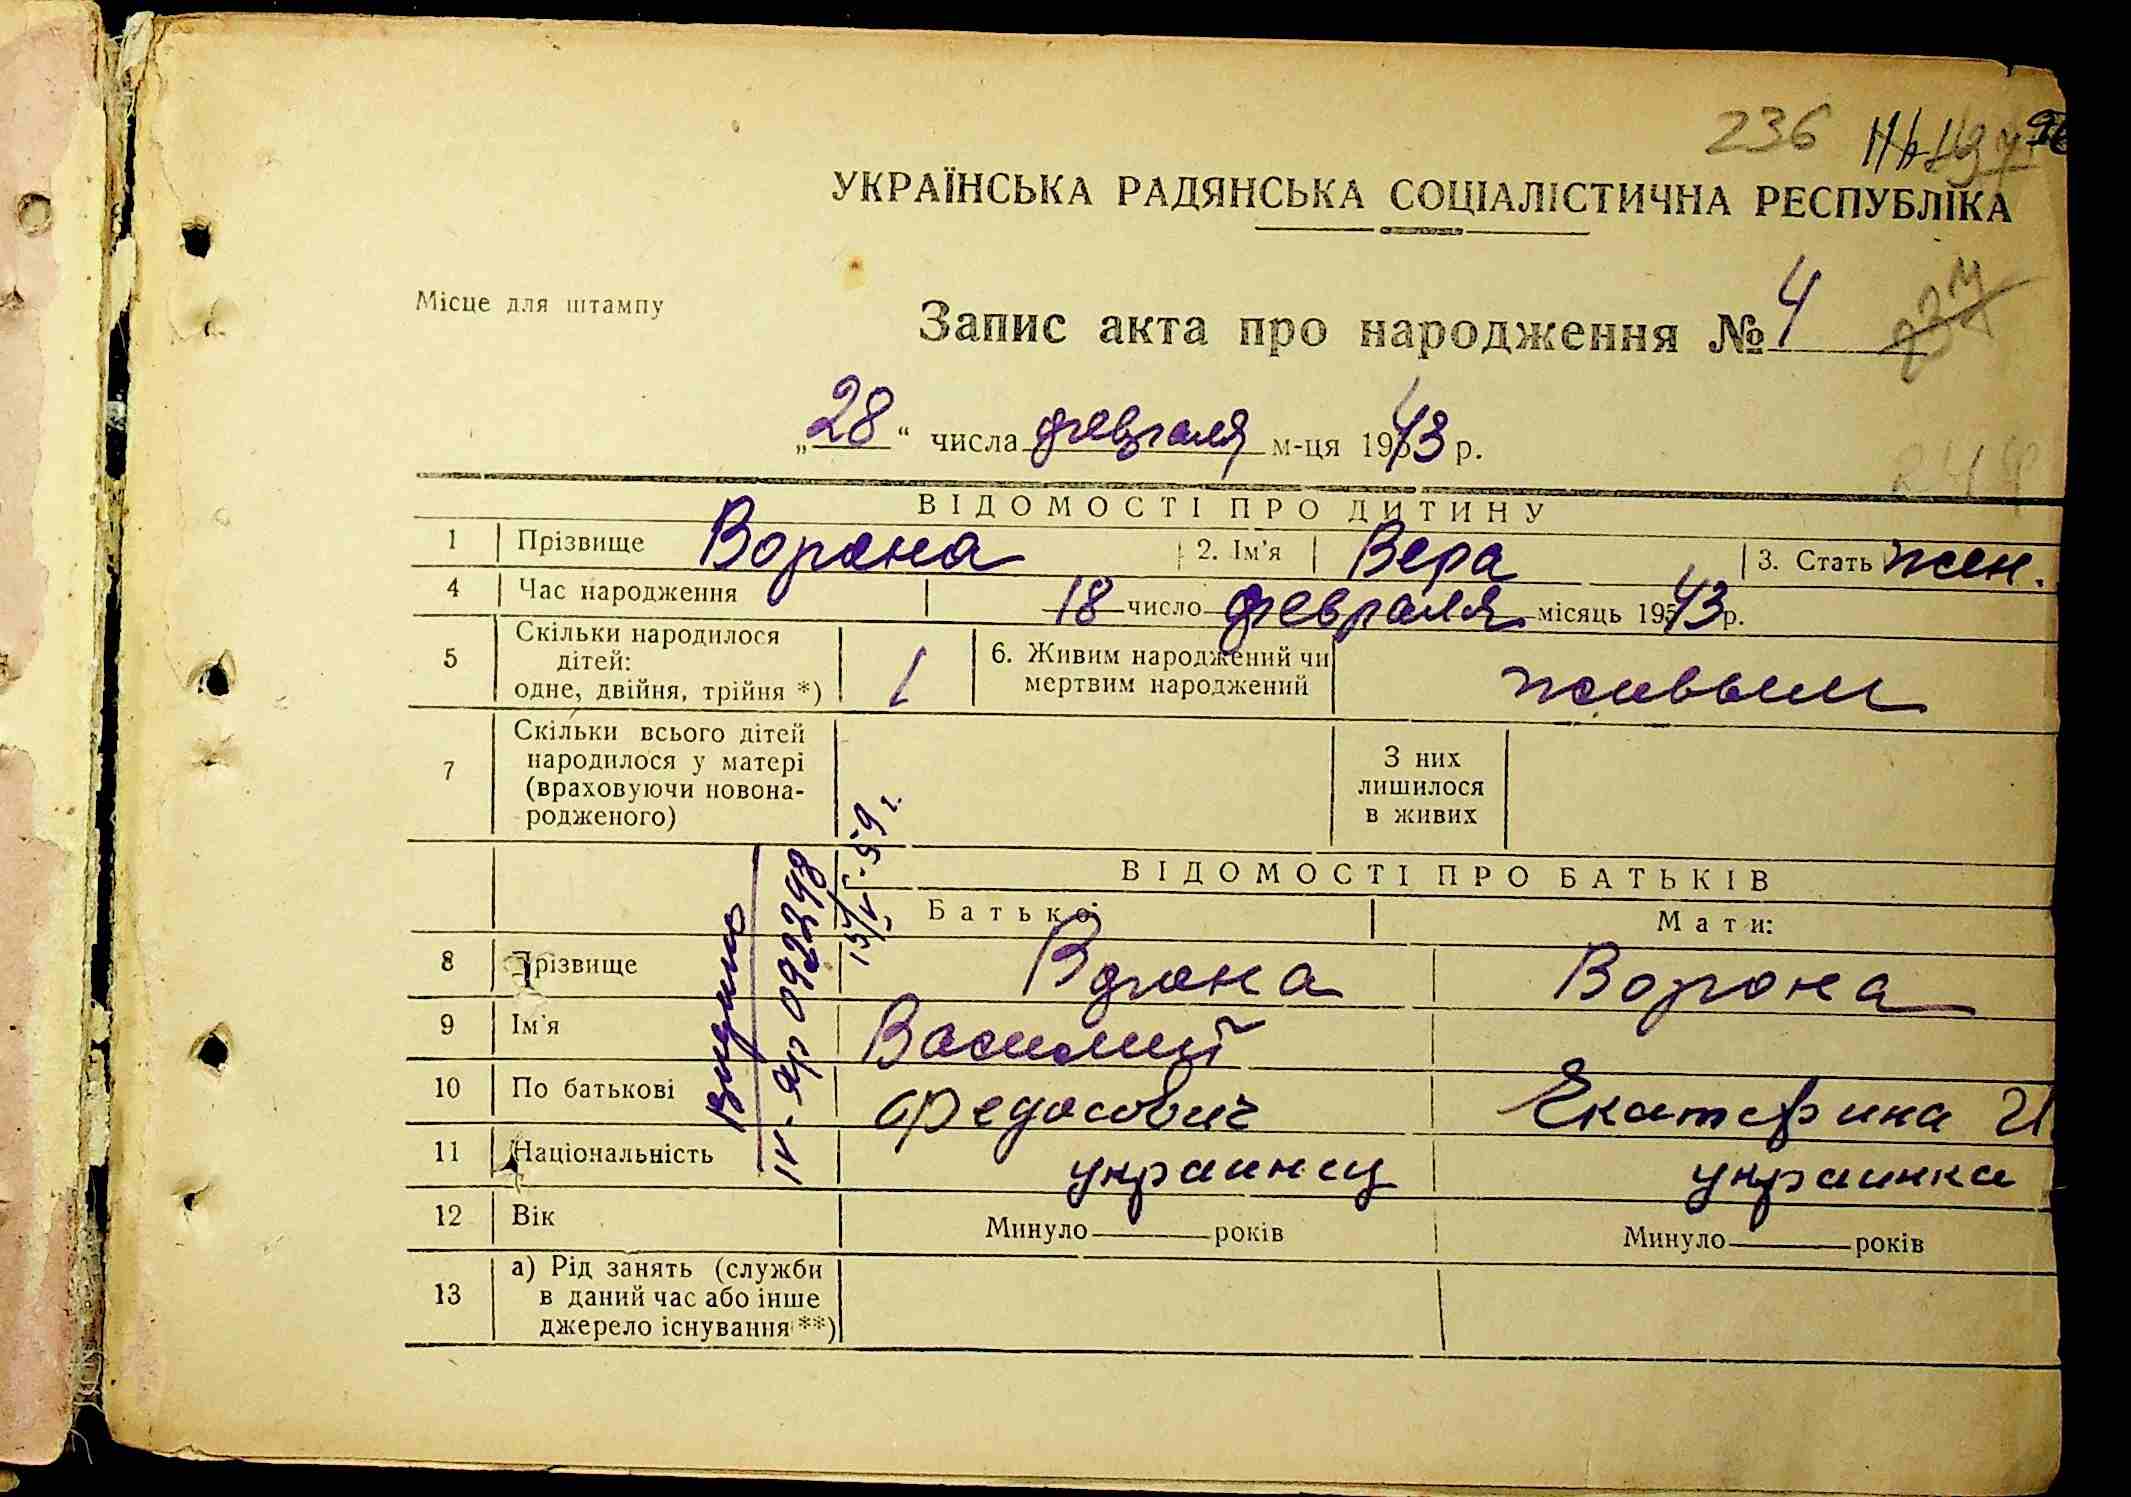 236
УКРАЇНСЬКА РАДЯНСЬКА СОЦІАЛІСТИЧНА РЕСПУБЛІКА
Місце для штампу
Запис акта про народження № 4
„28“ числа февраля м-ця 1943 р.
ВІДОМОСТІ ПРО ДИТИНУ
1 Прізвище Ворона 2. Ім'я Вера 3. Стать жен.
4 Час народження 18 число февраля місяць 1943 р.
5 Скільки народилося дітей: одне, двійня, трійня *) 1 6. Живим народжений чи мертвим народжений живым
7 Скільки всього дітей народилося у матері (враховуючи новонародженого) З них лишилося в живих
ВІДОМОСТІ ПРО БАТЬКІВ
Батько: Мати:
8 Прізвище Ворона Ворона
9 Ім'я Василий
10 По батькові Федосович Екатерина И
11 Національність украинец украинка
12 Вік Минуло років Минуло років
13 а) Рід занять (служби в даний час або інше джерело існування **)
Видано
15/V-59 г.